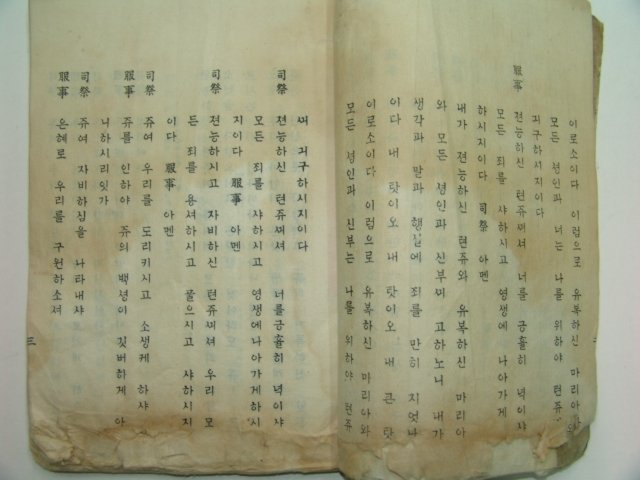 이로소이다 이럼으로 유복하신 마리아와
모든 셩인과 너는 나를 위하야 련쥬
긔구하서지이다
服事 젼능하신 련쥬씨셔 너를 긍휼히 녁이샤
모든 죄를 샤하시고 영생에나아가게
하시지이다 司祭 아멘
내가 젼능하신 련쥬와 유복하신 마리아
와 모든 셩인과 신부씨 고하노니 내가
생각과 말과 행실에 죄를 만히 지엇나
이다 내 탓이오 내 탓이오 내 큰 탓
이로소이다 이럼으로 유복하신 마리아와
모든 셩인과 신부는 나를 위하야 련쥬
씨 긔구하시지이다
司祭 젼능하신 련쥬씨셔 너를긍휼히 녁이샤
모든 죄를 샤하시고 영생에나아가게하시
지이다 服事 아멘
司祭 젼능하시고 자비하신 련쥬씨셔 우리 모
든 죄를 용셔하시고 풀으시고 샤하시지
이다 服事 아멘
司祭 쥬여 우리를 도리키시고 소생케 하샤
服事 쥬를 인하야 쥬의 백녕이 깃버하게 아
니하시리잇가
司祭 쥬여 자비하심을 나타내샤
服事 은혜로 우리를 구원하소셔
三